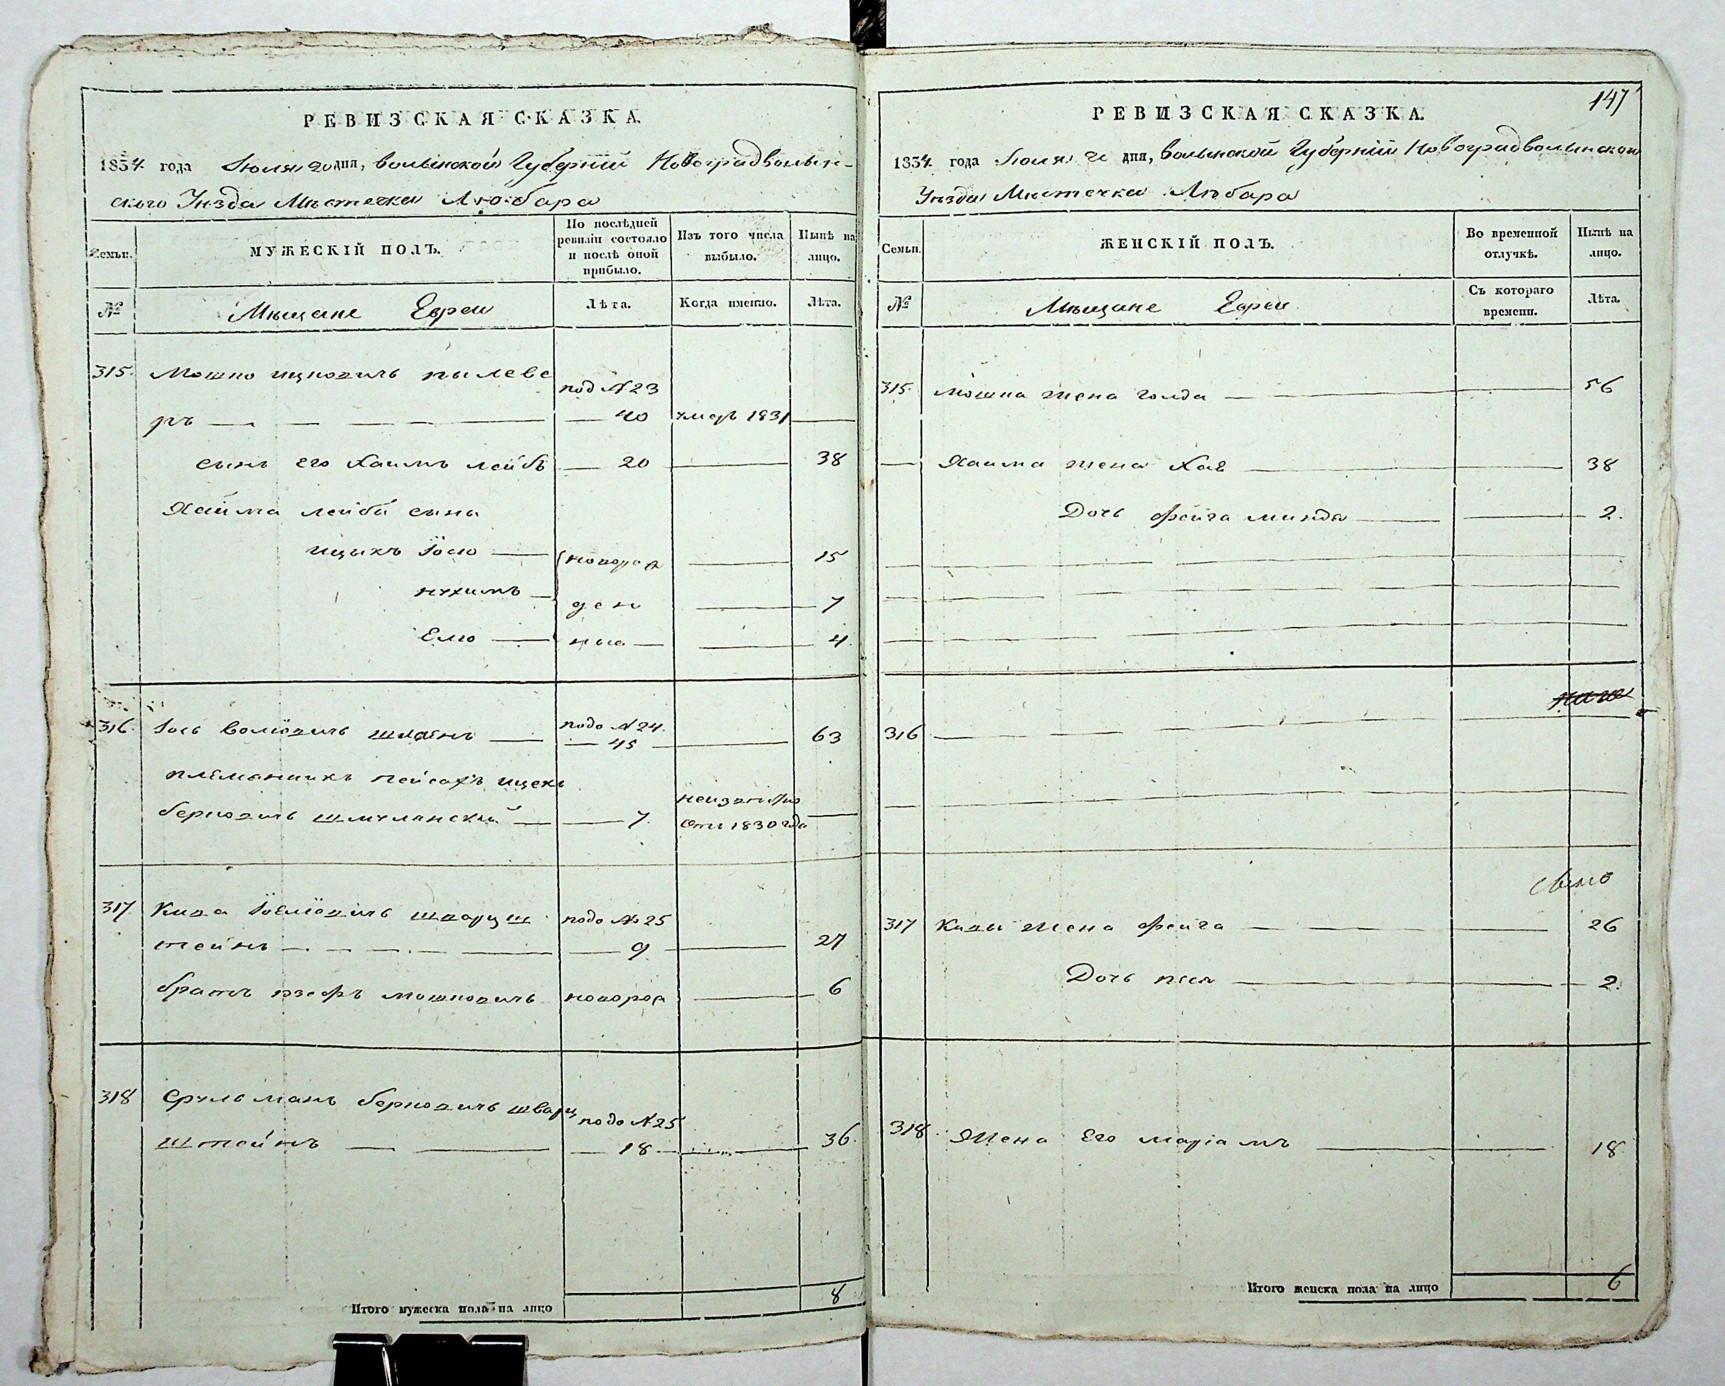 РЕВИЗСКАЯ СКАЗКА.
1834. года Июля 20 дня, Волынской Губерніи Новоградволын-
скаго Уезда Местечка Любара
Семьи.
МУЖЕСКІЙ ПОЛЪ.
По послѣдней ревизіи состояло и послѣ оной прибыло.
Изъ того числа выбыло.
Нынѣ на лицо.
№
Мещане Евреи
Лѣта.
Когда именно.
Лѣта.
315. Мошко Ицковичъ
под N 23
ръ — 40 умеръ 1831 —
сынъ его Хаимъ Лейбъ — 20 — 38
Хайма Лейбы сыны
Ицыкъ Йосю — новоро — 15
Нухимъ — ден — 7
Елю — ные — 4
316. Йось Волковичъ — подо N 24. — 45 — 63
племянникъ Пейсахъ Ицекъ
Берковичъ — 7. неизвѣстно
отъ 1830 года —
317. Кива шварцш подо № 25
тейнъ — 9 — 27
братъ Мошковичъ новорож — 6
318 Сруль Манъ Берковичъ шварц подо N 25
штейнъ — 18 — 36.
Итого мужеска пола на лицо 8
147
РЕВИЗСКАЯ СКАЗКА.
1834. года Июля дня, Волынской Губерніи Новоградволынского
Уезда Местечка Любара
Семьи.
ЖЕНСКІЙ ПОЛЪ.
Во временной отлучкѣ.
Нынѣ на лицо.
№
Мещане Евреи
Съ котораго времени.
Лѣта.
315. Мошка жена Голда — 56
— Хаима жена Хая — 38
Дочь Фейга Минда — 2.
316 —
317 Кивы жена Фейга — 26
Дочь Песя — 2.
318. Жена его Маріамъ — 18
Итого женска пола на лицо 6